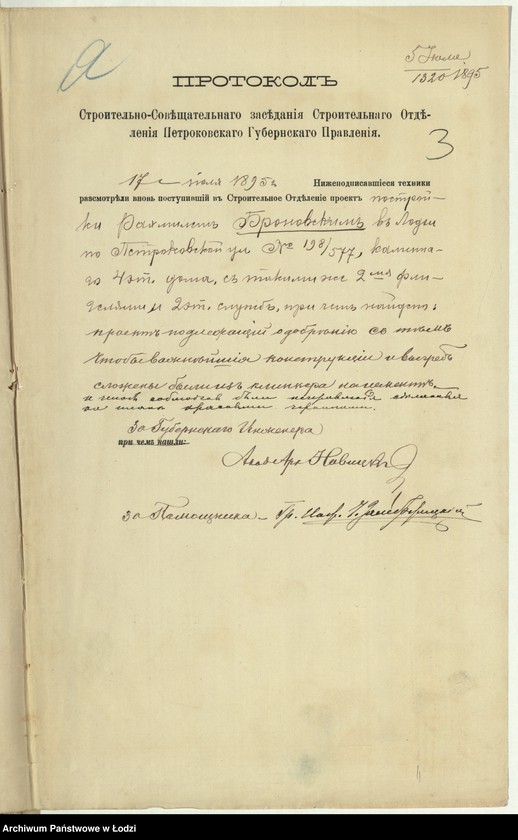 а
5 Июля
1320 1895
ПРОТОКОЛЪ
Строительно-Совѣщательнаго засѣданія Строительнаго Отдѣ-
ленія Петроковскаго Губернскаго Правленія.
3
17 Іюля 1895 г. Нижеподписавшіеся техники
разсмотрѣли вновь поступившій въ Строительное Отдѣленіе проектъ построй-
ки Рахмилемъ Броновскимъ въ Лодзи
по Петроковской ул № 198/577, каменна-
го 4 эт. дома, съ такими же 2мя фли-
гелями и 2 эт. службъ, при чемъ найденъ:
проектъ подлежащій одобренію съ тѣмъ
чтобы важнѣйшія конструкціи и выгребъ
сложены были изъ клинкера на цементѣ,
и чтобы соблюдены были исправленія сдѣланныя
на планѣ красными чернилами.
За Губернскаго Инженера
при чемъ нашли:
Акад Арх Новицкій
За Помощника — Гр. Инж.
Archiwum Państwowe w Łodzi